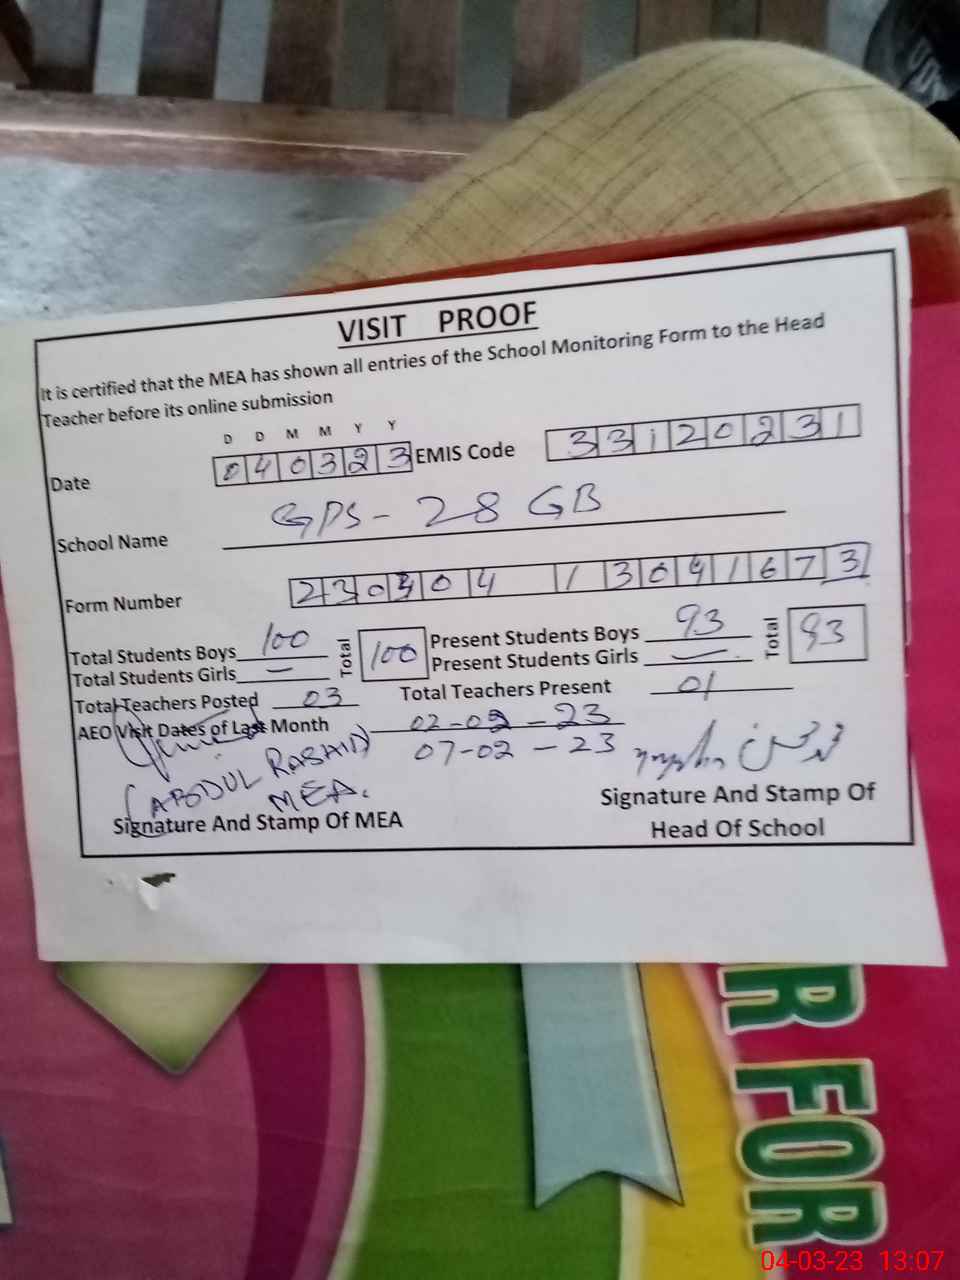 VISIT PROOF
It is certified that the MEA has shown all entries of the School Monitoring Form to the Head
Teacher before its online submission
D D M M Y Y
Date 040323 EMIS Code 33120231
School Name GPS - 28 GB
Form Number 230304 / 3041673
Total Students Boys 100 Total 100 Present Students Boys 93 Total 93
Total Students Girls — Present Students Girls —
Total Teachers Posted 03 Total Teachers Present 01
AEO Visit Dates of Last Month 02-02-23
07-02-23
(ABDUL RASHID)
MEA.
Signature And Stamp Of MEA
Signature And Stamp Of
Head Of School
R FOR
04-03-23 13:07